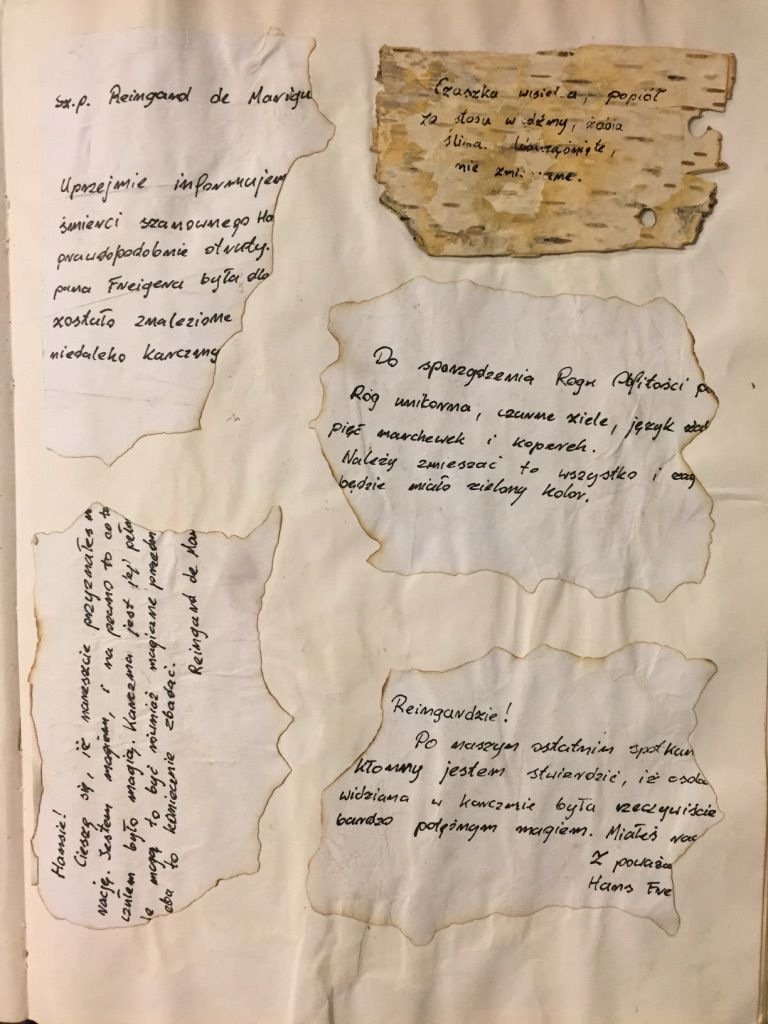 Sz.p. Reingard de Marigu
Uprzejmie informujem
śmierci szanownego Ha
prawdopodobnie otruty.
pana Freigera była dla
zostało znalezione
niedaleko karczmy
Czaszka wisiel a, popiół
ze stosu w dźmy, żabia
ślina.
nie zmi
Do sporządzenia Rogu Obfitości po
Róg unikorna, czarne ziele, język
pięć marchewek i koperek.
Należy zmieszać to wszystko i zag
będzie miało zielony kolor.
Hansie!
Cieszę się, iż nareszcie przyznałeś m
rację. Jestem magiem, i na pewno to co to
czułem było magią. Karczma jest jej peł
le mogą to być również magiczne przedm
eba to koniecznie zbadać.
Reingard de Mar
Reingardzie!
Po naszym ostatnim spotkan
kłonny jestem stwierdzić, iż osoba
widziana w karczmie była rzeczywiście
bardzo potężnym magiem. Miałeś rac
Z poważa
Hans Fre